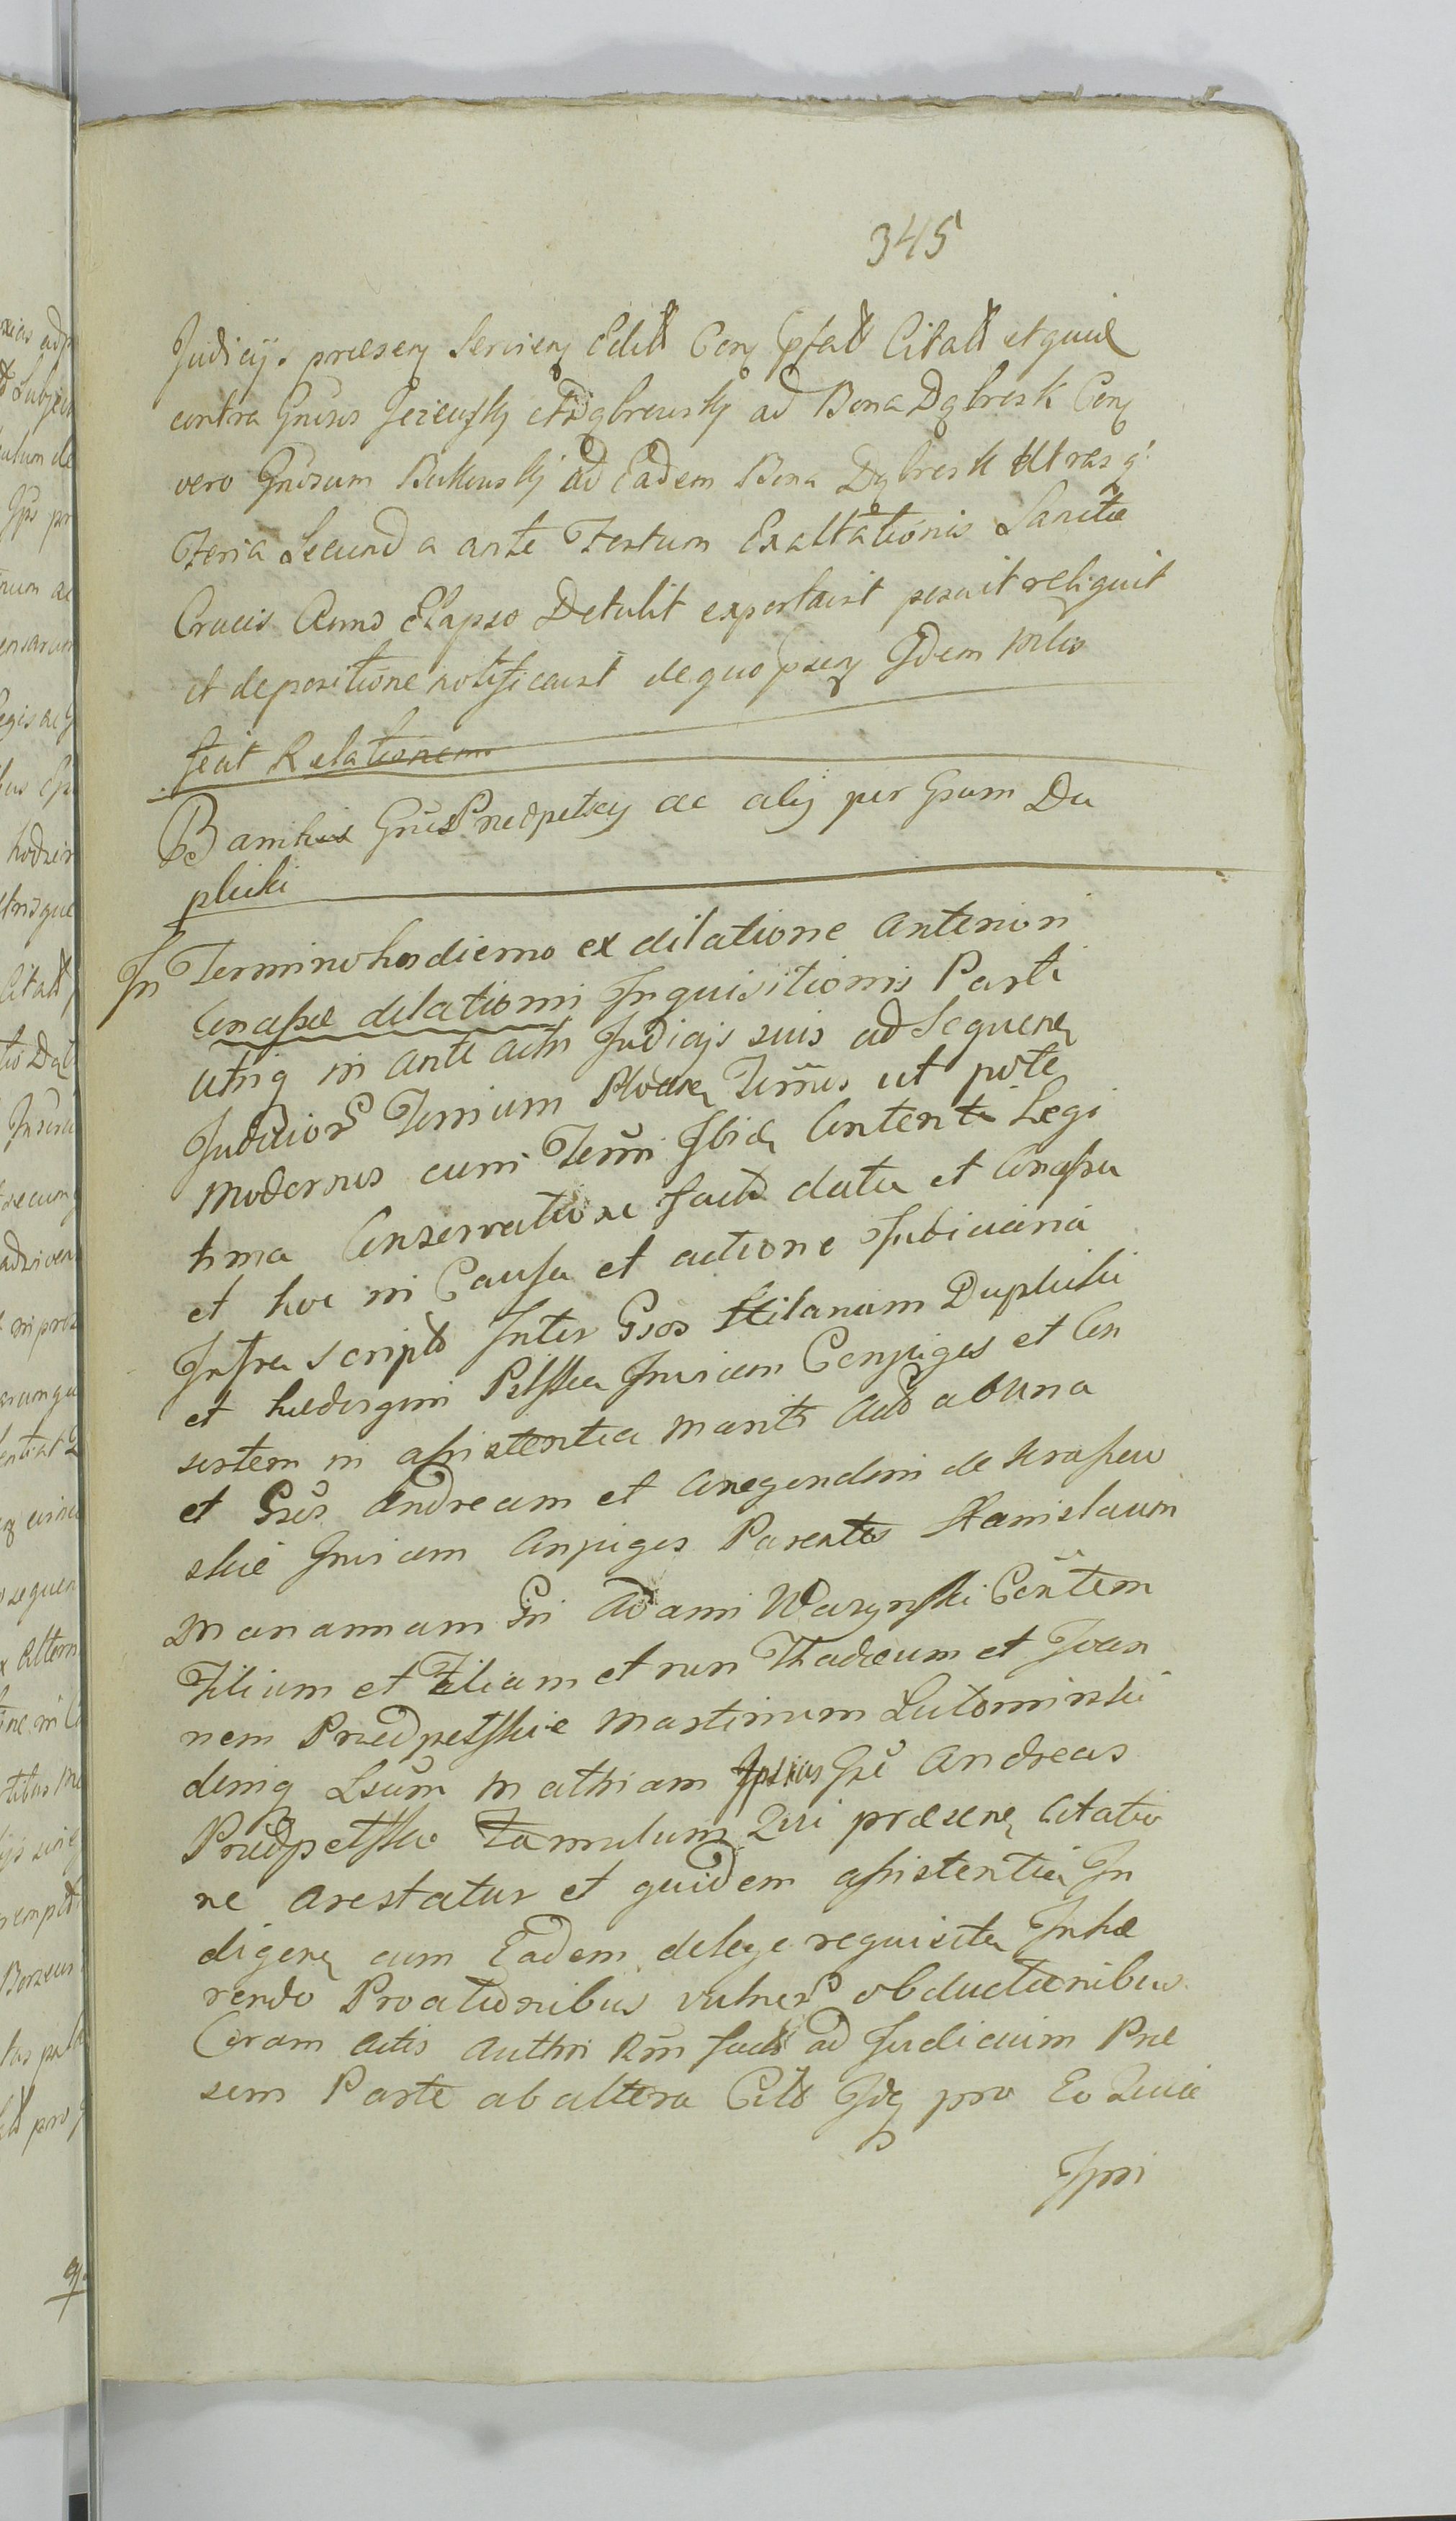 345
Judicij. praesen Servien Editt Con Citatt et quid
contra Gnosos et Dąbrewskj ad Bona Dąbresk Con
vero Gnosum Bukowskj ad Eadem Bona Dąbresk Utrasq
Feria Secunda ante Festum Exaltationis Sanctae
Crucis Anno Elapso Detulit exportavit posuit reliquit
et depositione notificavit de quo Idem Mlis
fecit Relationem
Bannitus Gnus Przedpelscy ac alij per Gsum Du
plicki
In Termino hodierno ex dilatione anteriori
Concessae dilationi Inquisitionis Parti
utriq in ante actis Judicijs suis ad Sequen
Judicior Termium Termus ut pote
modernus cum Termi Ibid Content Legi
tima Conservatione facta data et Concessa
et hoc in Causa et actione Judiciaria
Infra script Inter Gsos Hilarium Duplicki
et hedvigim Pelska Invicem Conjuges et Con
sortem in assistentia mariti act ab una
et Gsos Andream et Cunegundim de
skie Invicem Conjuges Parentes Stanislaum
Mariannam Gsi Adami Wasynski Contem
Filium et Filiam et non Thadeum et Joan
nem Przedpelskie Martinum Lutominski
deniq Lsum Mathiam Ipsius Gsi Andreas
Przedpelski Famulum Qui praesen Citatio
ne arestatur et quidem assistentia In
digen cum Eadem de lege requisita Inhae
rendo Proationibus vulner obductionibus
Coram actis authen Rm fact ad Judicium Prae
sens Parte ab altera Citt Idq pro Eo Quia
Ipsi